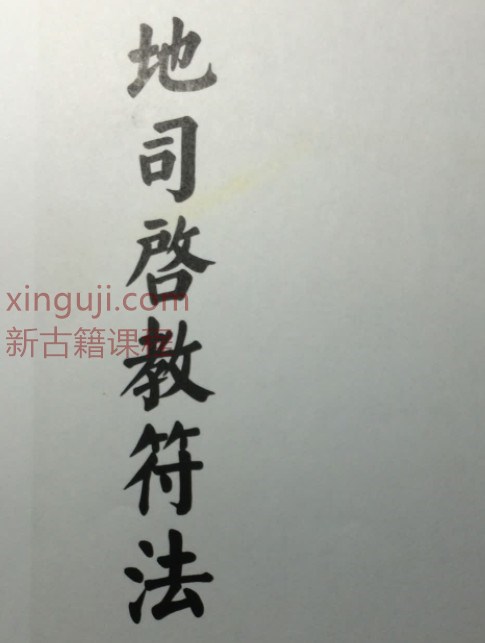 地司啓教符法
xinguji.com
新古籍课程